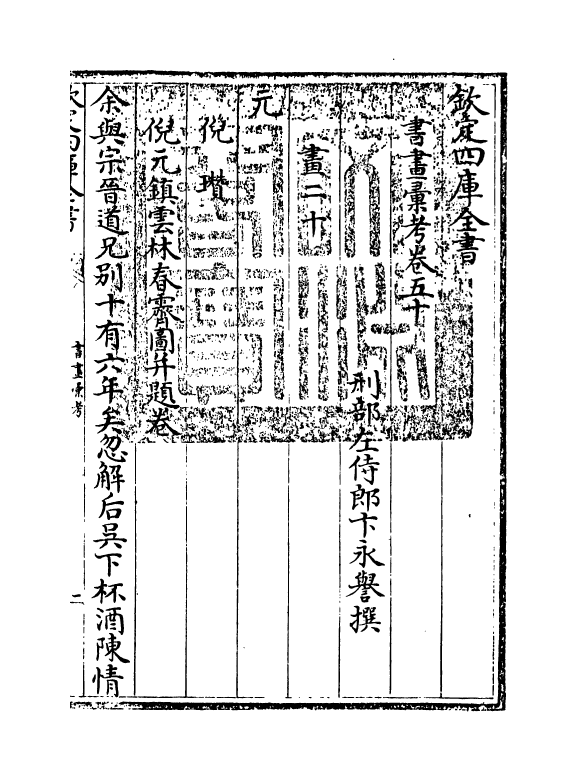 欽定四庫全書
書畫彚考卷五十
刑部左侍郎卞永譽撰
畫二十
元
倪瓚
倪元鎮雲林春霽圖并題卷
余與宗晉道兄别十有六年矣忽解后吳下杯酒陳情
欽定四庫全書
書畫彚考